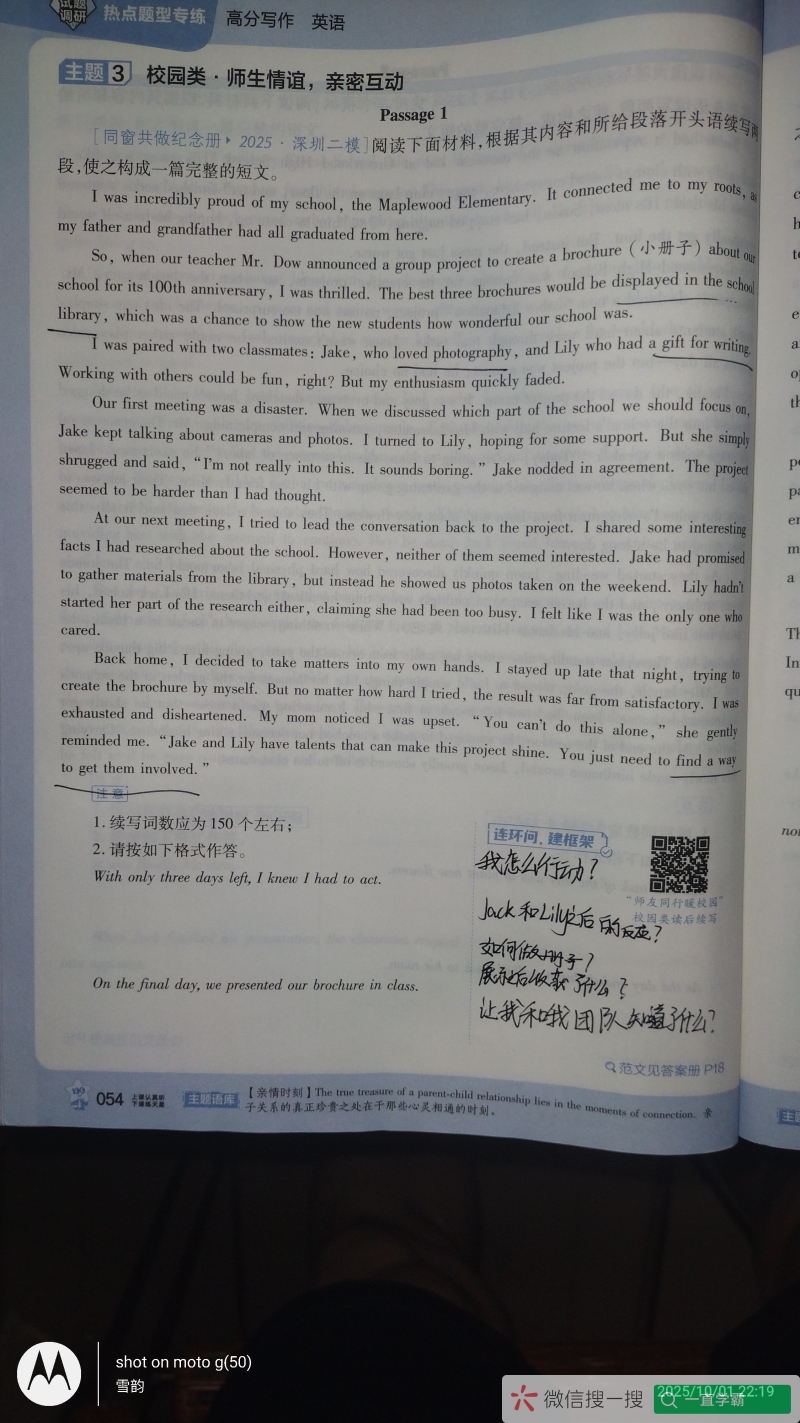 试题
调研
热点题型专练 高分写作 英语
主题3 校园类·师生情谊，亲密互动
Passage 1
[同窗共做纪念册▸2025·深圳二模]阅读下面材料，根据其内容和所给段落开头语续写两
段，使之构成一篇完整的短文。
I was incredibly proud of my school, the Maplewood Elementary. It connected me to my roots, as
my father and grandfather had all graduated from here.
So, when our teacher Mr. Dow announced a group project to create a brochure (小册子) about our
school for its 100th anniversary, I was thrilled. The best three brochures would be displayed in the school
library, which was a chance to show the new students how wonderful our school was.
I was paired with two classmates: Jake, who loved photography, and Lily who had a gift for writing.
Working with others could be fun, right? But my enthusiasm quickly faded.
Our first meeting was a disaster. When we discussed which part of the school we should focus on,
Jake kept talking about cameras and photos. I turned to Lily, hoping for some support. But she simply
shrugged and said, “I'm not really into this. It sounds boring.” Jake nodded in agreement. The project
seemed to be harder than I had thought.
At our next meeting, I tried to lead the conversation back to the project. I shared some interesting
facts I had researched about the school. However, neither of them seemed interested. Jake had promised
to gather materials from the library, but instead he showed us photos taken on the weekend. Lily hadn't
started her part of the research either, claiming she had been too busy. I felt like I was the only one who
cared.
Back home, I decided to take matters into my own hands. I stayed up late that night, trying to
create the brochure by myself. But no matter how hard I tried, the result was far from satisfactory. I was
exhausted and disheartened. My mom noticed I was upset. “You can't do this alone,” she gently
reminded me. “Jake and Lily have talents that can make this project shine. You just need to find a way
to get them involved.”
注意
1. 续写词数应为150个左右；
2. 请按如下格式作答。
With only three days left, I knew I had to act.
On the final day, we presented our brochure in class.
连环问，建框架
我怎么行动？
Jack和Lily之后的反应？
如何做小册子？
展示之后收获了什么？
让我和我团队知道了什么？
“师友同行暖校园”
校园类读后续写
范文见答案册P18
054 上课认真听
下课练天星
主题语库 【亲情时刻】The true treasure of a parent-child relationship lies in the moments of connection. 亲
子关系的真正珍贵之处在于那些心灵相通的时刻。
shot on moto g(50)
雪韵
微信搜一搜
一直学霸
2025/10/01 22:19